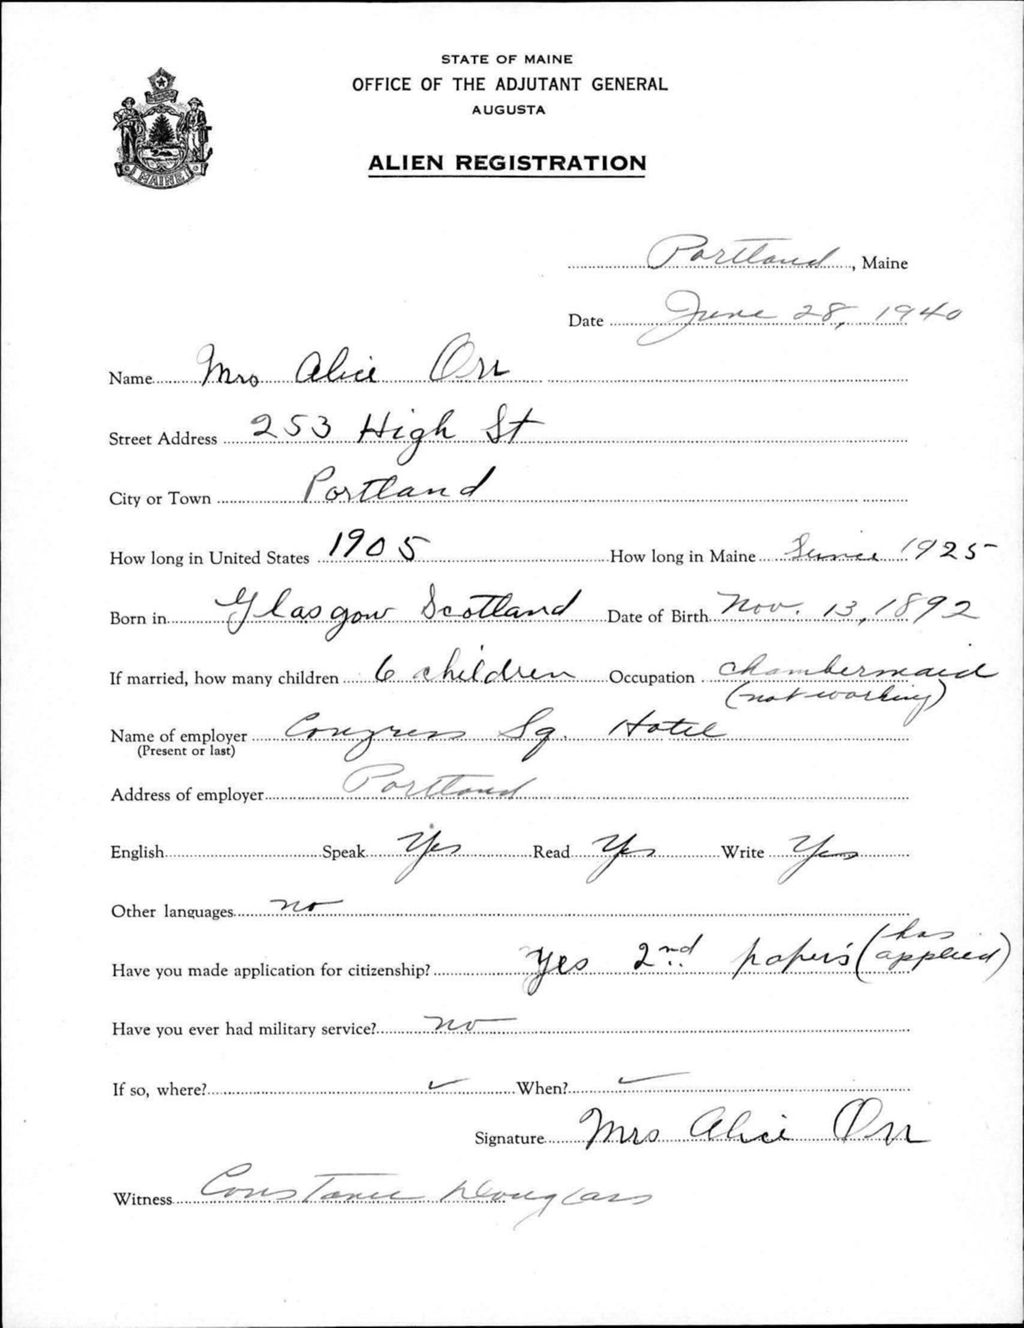 STATE OF MAINE
OFFICE OF THE ADJUTANT GENERAL
AUGUSTA
ALIEN REGISTRATION
MAINE
Portland, Maine
Date June 28, 1940
Name Mrs Alice Orr
Street Address 253 High St
City or Town Portland
How long in United States 1905 How long in Maine Since 1925
Born in Glasgow Scotland Date of Birth Nov. 13, 1892
If married, how many children 6 children Occupation chambermaid
(not working)
Name of employer Congress Sq. Hotel
(Present or last)
Address of employer Portland
English Speak Yes Read Yes Write Yes
Other languages no
Have you made application for citizenship? Yes 2nd papers (has applied)
Have you ever had military service? no
If so, where? ✓ When? ✓
Signature Mrs Alice Orr
Witness Constance Douglass